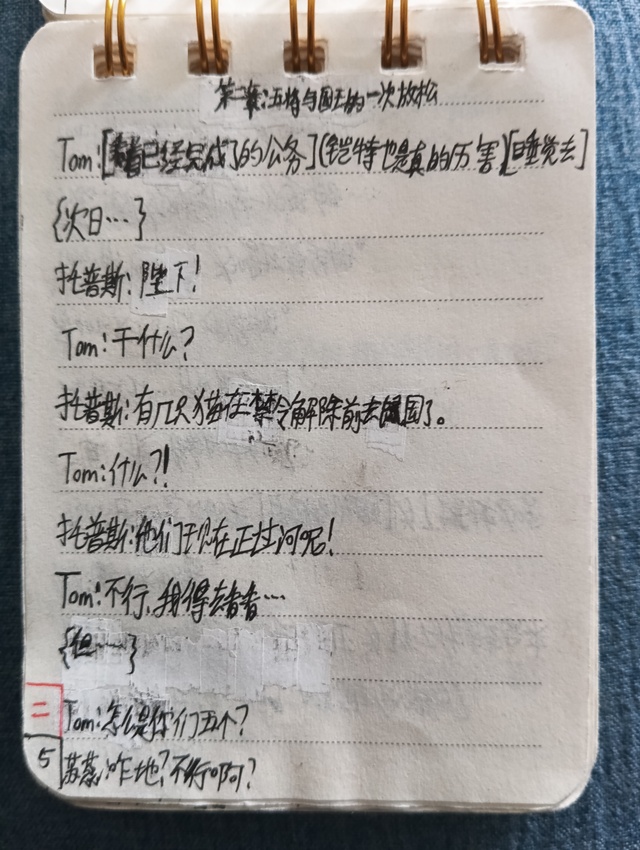 第二章:五将与国王的一次放松
Tom:[看着已经完成了的公务](铠特也是真的厉害)[睡觉去]
{次日…}
托普斯:陛下!
Tom:干什么?
托普斯:有几只猫在禁令解除前去鼠国了。
Tom:什么?!
托普斯:他们现在正过河呢!
Tom:不行,我得去看看…
{但……}
Tom:怎么是你们五个?
二
5
苏蕊:咋地?不行啊?